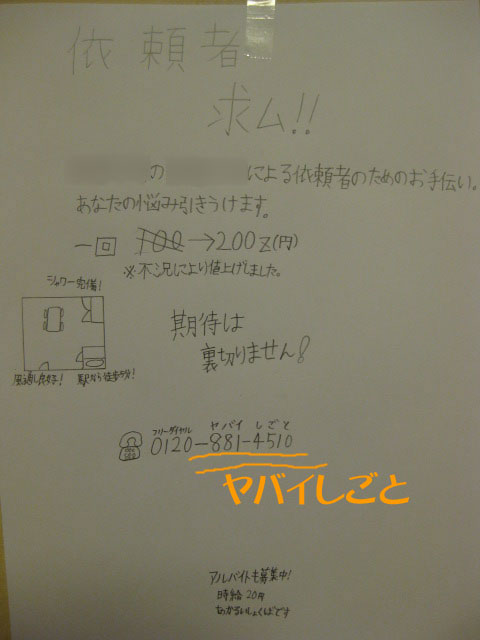 依頼者
求ム!!
の による依頼者のためのお手伝い。
あなたの悩み引きうけます。
一回 100→200z(円)
※不況により値上げしました。
シャワー完備!
風通し良好! 駅から徒歩5分!
期待は
裏切りません!
フリーダイヤル ヤバイ しごと
0120-881-4510
ヤバイしごと
アルバイトも募集中!
時給20円
あかるいしょくばです